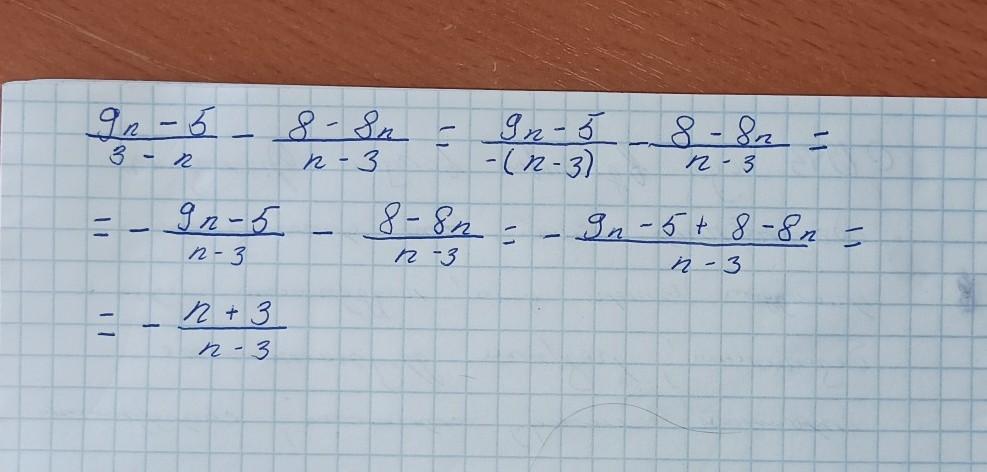 (9n - 5)/(3 - n) - (8 - 8n)/(n - 3) = (9n - 5)/(-(n - 3)) - (8 - 8n)/(n - 3) =
= - (9n - 5)/(n - 3) - (8 - 8n)/(n - 3) = - (9n - 5 + 8 - 8n)/(n - 3) =
= - (n + 3)/(n - 3)